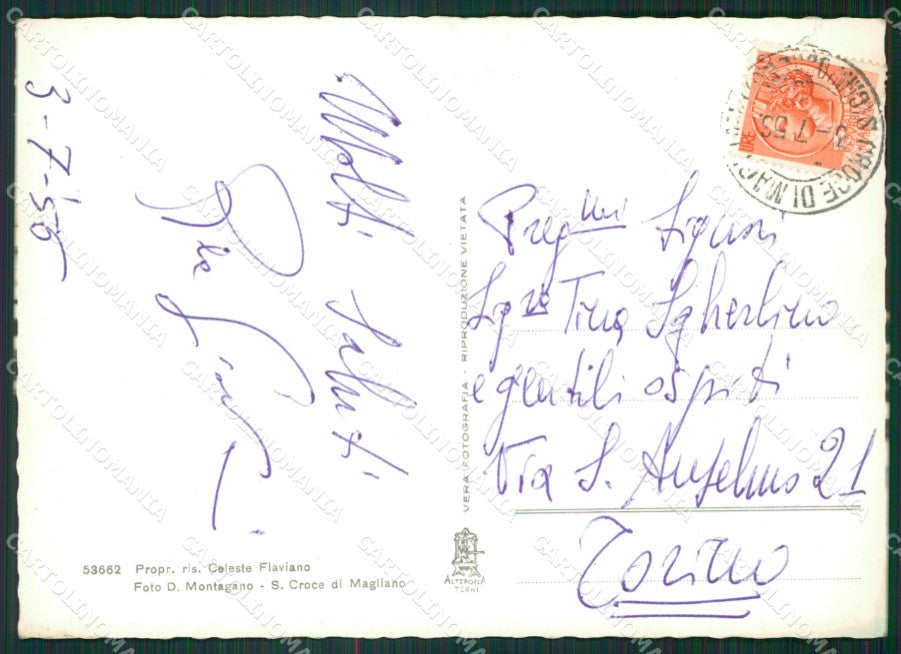 3-7-55
Molti Saluti
Preg mi Signori
Sig ra Tina Sgherlino
e gentili ospiti
Via S. Anselmo 21
Torino
VERA FOTOGRAFIA - RIPRODUZIONE VIETATA
53662 Propr. ris. Celeste Flaviano
Foto D. Montagano - S. Croce di Magliano
ALTEROCCA
TERNI
S. CROCE DI MAGL
3-7 55
CARTOLINOMANIA